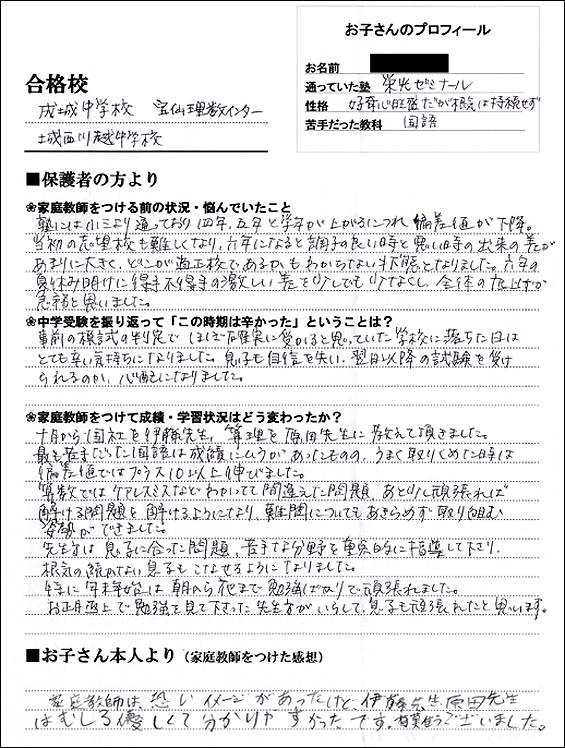 お子さんのプロフィール
お名前
通っていた塾 栄光ゼミナール
性格 好奇心旺盛だが根気は持続せず
苦手だった教科 国語
合格校
成城中学校 宝仙理数インター
城西川越中学校
■保護者の方より
❀家庭教師をつける前の状況・悩んでいたこと
塾には小三より通っており四年、五年と学年が上がるにつれ偏差値が下降。
当初の志望校も難しくなり、六年になると調子の良い時と悪い時の出来の差が
あまりに大きく、どこが適正校であるかもわからない状態となりました。六年の
夏休み明けに得手不得手の激しい差を少しでも少なくし、全体の底上げが
急務と思いました。
❀中学受験を振り返って「この時期は辛かった」ということは?
事前の模試の判定でほぼ確実に受かると思っていた学校に落ちた日は
とても辛い気持ちになりました。息子も自信を失い、翌日以降の試験を受け
られるのか、心配になりました。
❀家庭教師をつけて成績・学習状況はどう変わったか?
十月から国社を伊藤先生、算理を原田先生に教えて頂きました。
最も苦手だった国語は成績にムラがあったものの、うまく取りくめた時は
偏差値ではプラス10以上伸びました。
算数ではケアレスミスなどわかってて間違えた問題、あと少し頑張れば
解ける問題を解けるようになり、難問についてもあきらめず取り組む
姿勢ができました。
先生方は息子に合った問題、苦手な分野を重点的に指導して下さり、
根気の続かない息子もこなせるようになりました。
特に年末年始は朝から夜まで勉強ばかりで頑張れました。
お正月返上で勉強を見て下さった先生方がいらして、息子も頑張れたと思います。
■お子さん本人より(家庭教師をつけた感想)
家庭教師は、恐いイメージがあったけど、伊藤先生、原田先生
はむしろ優しくて分かりやすかったです。有難うございました。